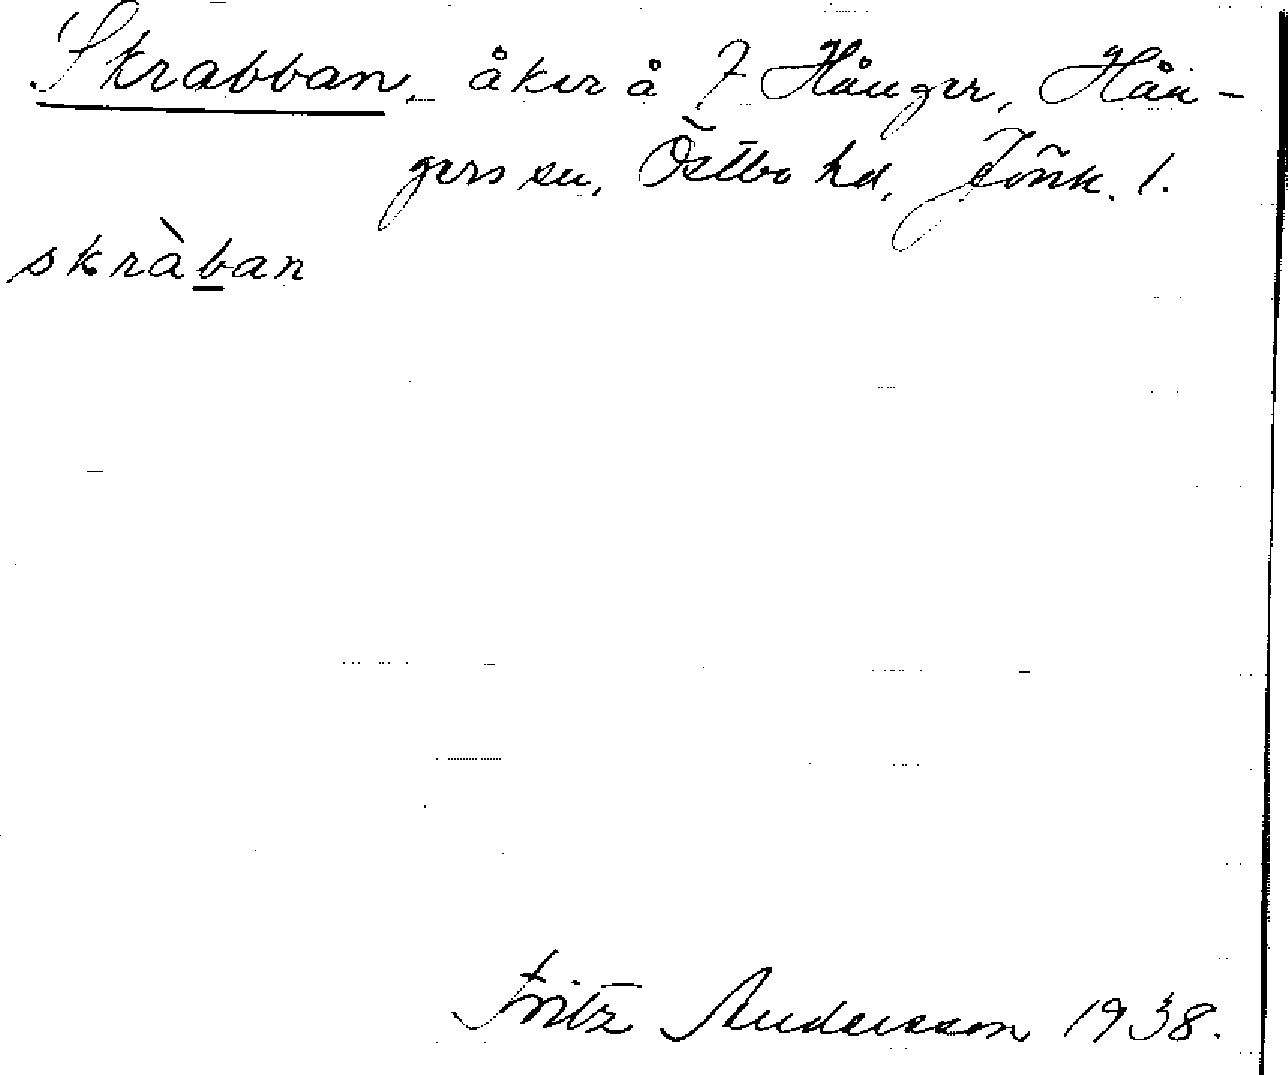 Skrabban, åker å 7 Hånger, Hån-
gers sn, Östbo hd, Jönk. l.
skràban
Fritz Andersson 1938.